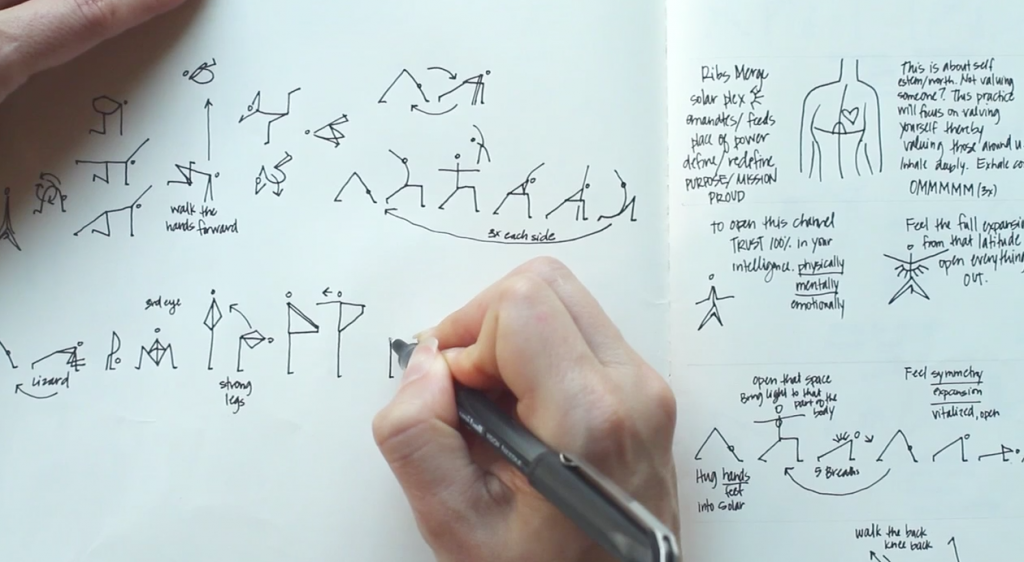 walk the
hands forward
3x each side
3rd eye
Lizard
strong
legs
Ribs Merge
solar plex
emanates/feeds
place of power
define/redefine
PURPOSE/MISSION
PROUD
This is about self
esteem/worth. Not valuing
someone? This practice
will focus on valuing
yourself thereby
valuing those around u
Inhale deeply. Exhale co
OMMMMM (3x)
to open this channel
TRUST 100% in your
intelligence. physically
mentally
emotionally
Feel the full expansion
from that latitude
open everything
OUT.
open that space
Bring light to that
part of the
body
Feel symmetry
expansion
vitalized, open
Hug hands
feet
into Solar
5 Breaths
walk the back
knee back